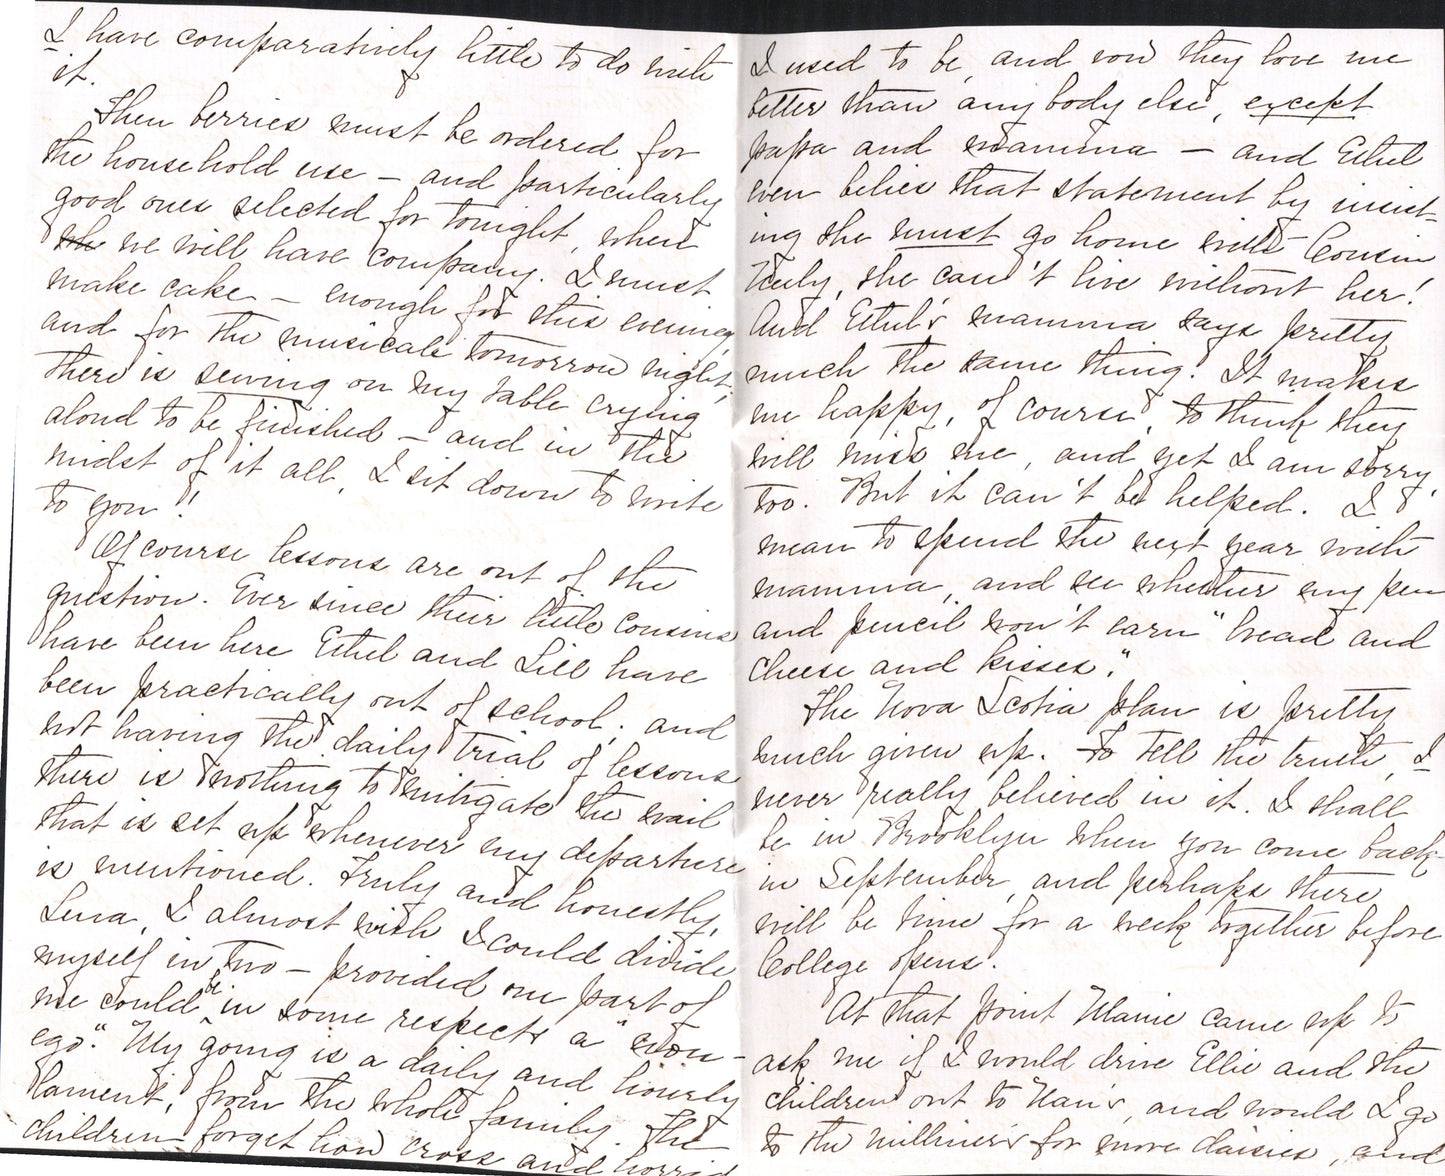 I have comparatively little to do with
it.
Then berries must be ordered for
the household use – and particularly
good ones selected for tonight, when
wh we will have company. I must
make cake – enough for this evening
and for the musicale tomorrow night;
there is sewing on my table crying
aloud to be finished – and in the
midst of it all, I sit down to write
to you!
Of course lessons are out of the
question. Ever since their little cousins
have been here Ethel and Lill have
been practically out of school; and
not having the daily trial of lessons
there is nothing to mitigate the wail
that is set up whenever my departure
is mentioned. Truly and honestly,
Lena, I almost wish I could divide
myself in two – provided one part of
me could be in some respects a "non-
ego." My going is a daily and hourly
lament, from the whole family. The
children forget how cross and horrid
I used to be, and vow they love me
better than anybody else, except
papa and mamma – and Ethel
even belies that statement by insist-
ing she must go home with Cousin
Truly, she can't live without her!
And Ethel's mamma says pretty
much the same thing. It makes
me happy, of course, to think they
will miss me, and yet I am sorry,
too. But it can't be helped. I
mean to spend the next year with
mamma, and see whether my pen
and pencil won't earn "bread and
cheese and kisses".
The Nova Scotia plan is pretty
much given up. To tell the truth, I
never really believed in it. I shall
be in Brooklyn when you come back
in September, and perhaps there
will be time for a week together before
College opens.
At that point Mamie came up to
ask me if I would drive Ellie and the
children out to Nan's, and would I go
to the milliner's for more daisies, and